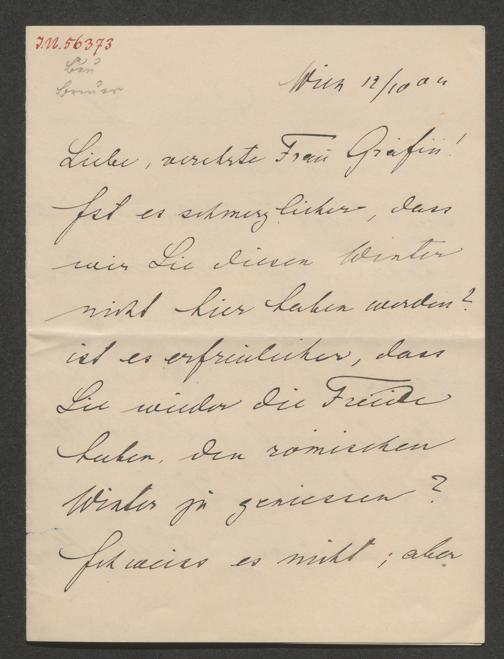 I.N. 56373
Breuer
Wien 12/10 00
Liebe, verehrte Frau Gräfin!
Ist es schmerzlicher, dass
wir Sie diesen Winter
nicht hier haben werden?
ist es erfreulicher, dass
Sie wieder die Freude
haben, den römischen
Winter zu geniessen?
Ich weiss es nicht; aber